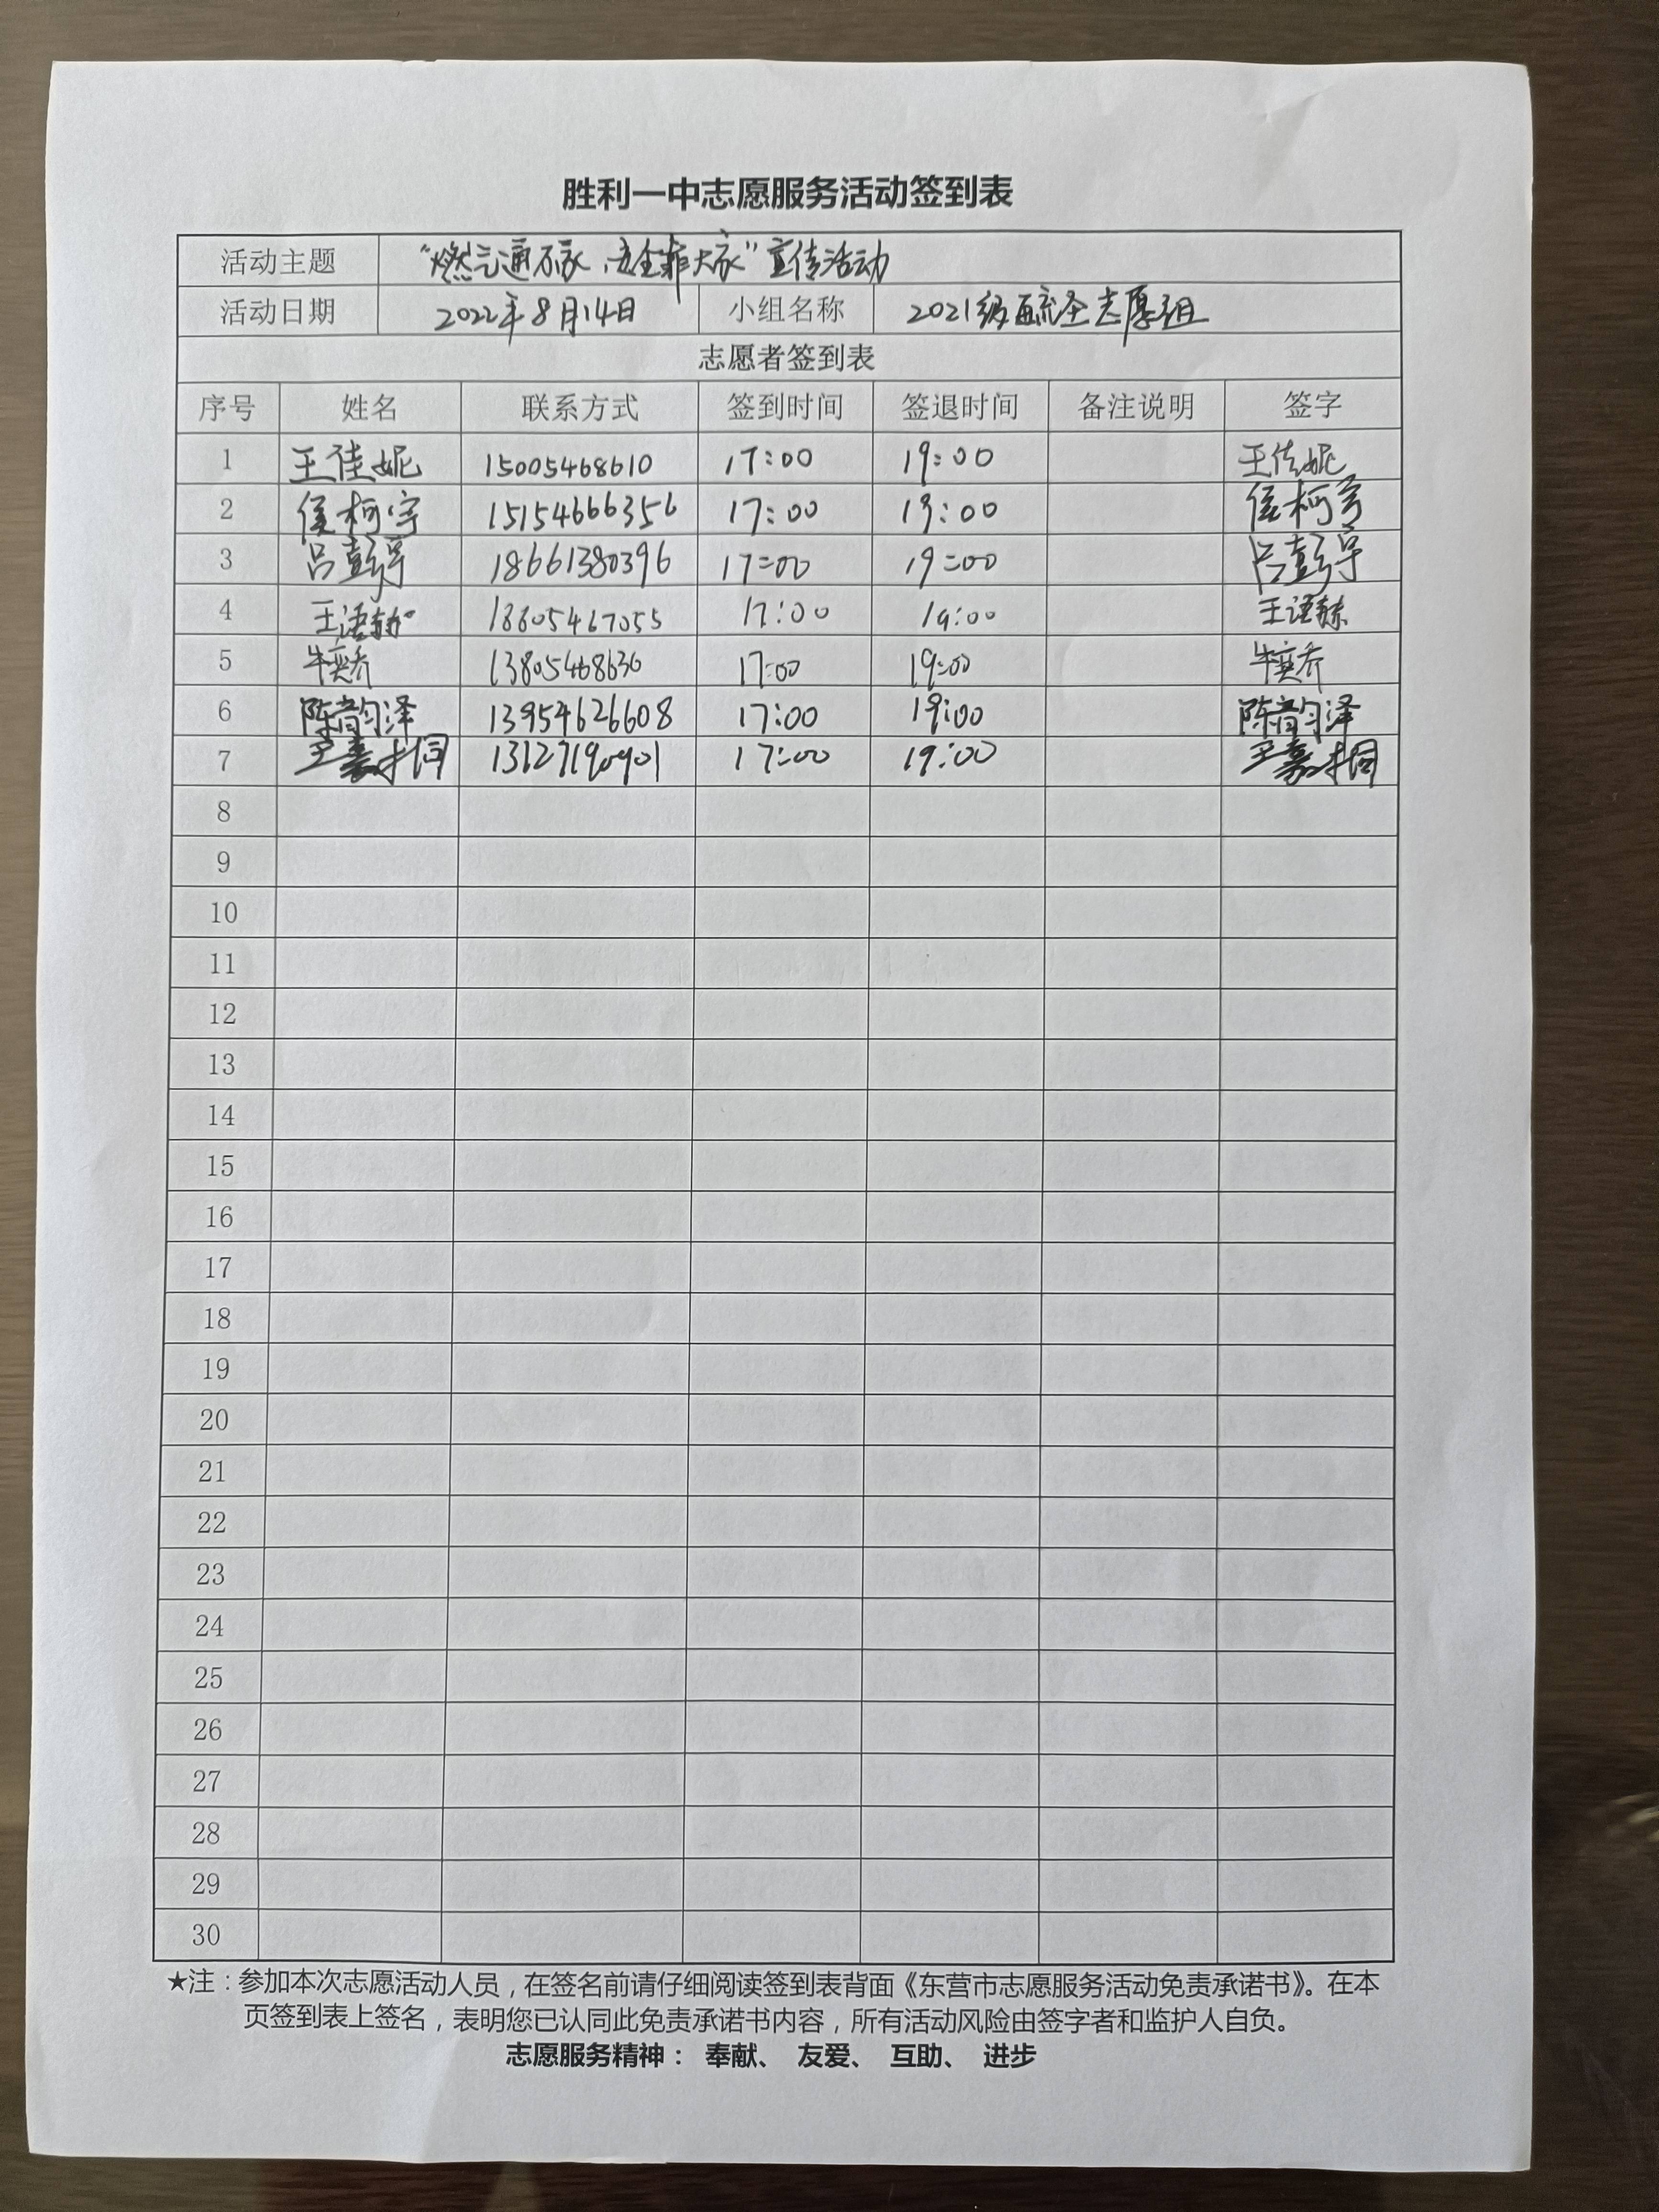 胜利一中志愿服务活动签到表
活动主题 “燃气通万家,安全靠大家”宣传活动
活动日期 2022年8月14日 小组名称 2021级 志愿组
志愿者签到表
序号 姓名 联系方式 签到时间 签退时间 备注说明 签字
1 王佳妮 15005468610 17:00 19:00 王佳妮
2 侯柯宇 15154666356 17:00 19:00 侯柯宇
3 吕彭宇 18661380396 17:00 19:00 吕彭宇
4 王语赫 18605467055 17:00 19:00 王语赫
5 牛奕乔 13805468636 17:00 19:00 牛奕乔
6 陈韵泽 13954626608 17:00 19:00 陈韵泽
7 王嘉桐 17:00 19:00 王嘉桐
8
9
10
11
12
13
14
15
16
17
18
19
20
21
22
23
24
25
26
27
28
29
30
★注:参加本次志愿活动人员,在签名前请仔细阅读签到表背面《东营市志愿服务活动免责承诺书》。在本
页签到表上签名,表明您已认同此免责承诺书内容,所有活动风险由签字者和监护人自负。
志愿服务精神: 奉献、 友爱、 互助、 进步